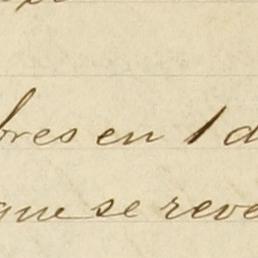 bres en 1 d
que se reve